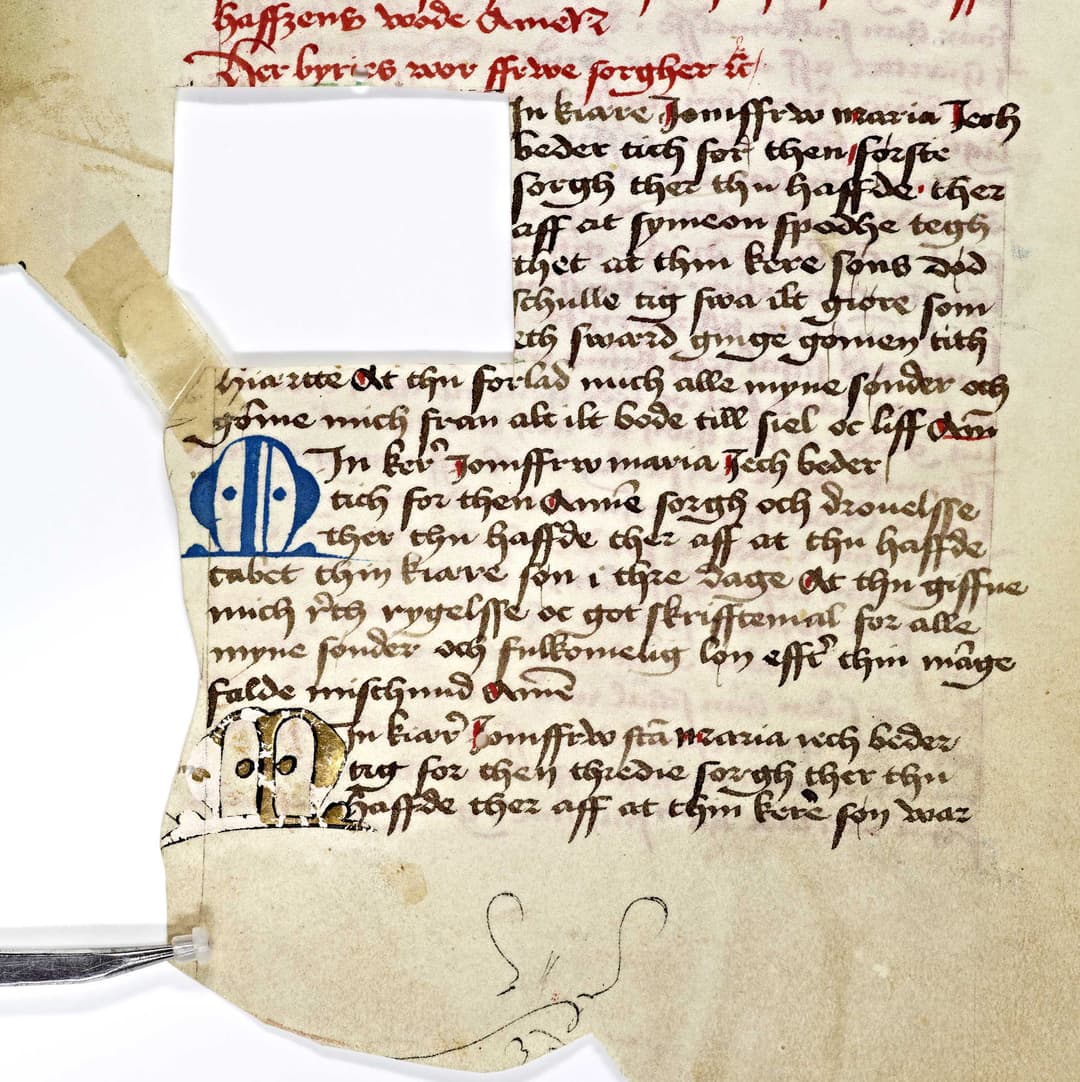 haffzens wode Amen
Her byries wor ffrwe sorgher etc
In kiare Jomffrw maria Jech
beder tich for then forste
sorgh ther thu haffde ther
aff at symeon spodhe tegh
thet at thin kere sons dod
schulle tig swa ilt giore som
eth sward ginge gomen tith
hiartte At thu forlad mich alle myne sonder och
gome mich fran alt ilt bode till siel oc liff Amen
MIn ker Jomffrw maria Jech beder
tich for then Annen sorgh och drouelsse
ther thu haffde ther aff at thu haffde
tabet thin kiare son i thre dage At thu giffue
mich rth rygelsse oc got skrifftemal for alle
myne sonder och fulkomelig lon effter thin mange
falde mischund Amen
MIn kiar Jomffrw sta maria iech beder
tig for then thredie sorgh ther thu
haffde ther aff at thin kere son war